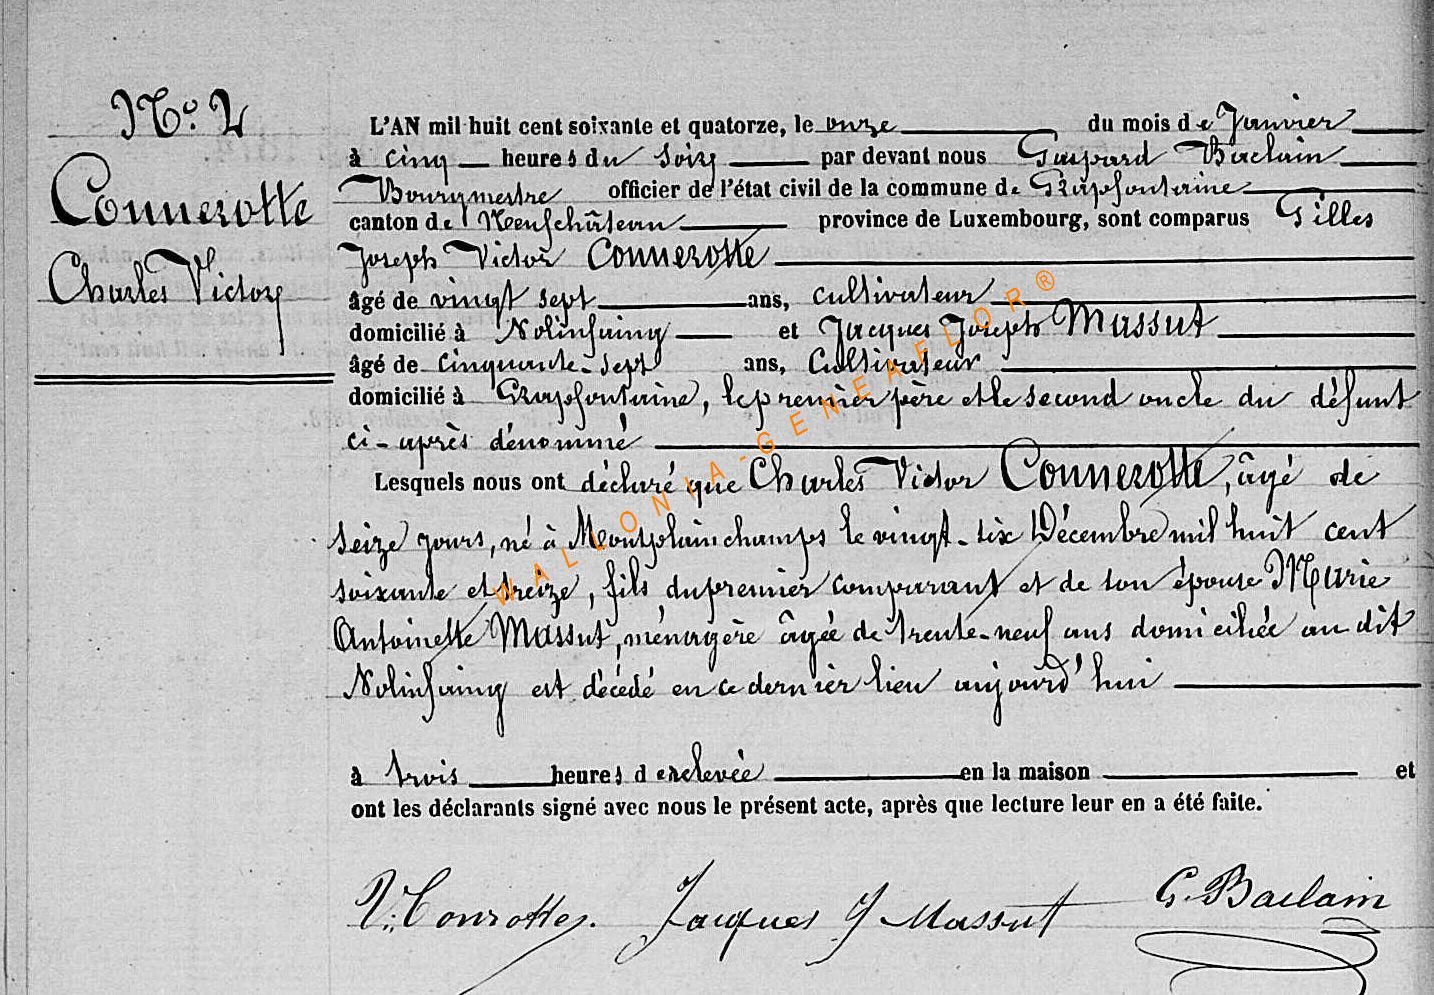 N° 2
Connerotte
Charles Victor
L'AN mil huit cent soixante et quatorze, le onze du mois de Janvier
à cinq heures du soir par devant nous Gaspard Baclain
Bourgmestre officier de l'état civil de la commune de Grapfontaine
canton de Neufchâteau province de Luxembourg, sont comparus Gilles
Joseph Victor Connerotte
âgé de vingt sept ans, cultivateur
domicilié à Nolinfaing et Jacques Joseph Massut
âgé de cinquante-sept ans, Cultivateur
domicilié à Grapfontaine, le premier père et le second oncle du défunt
ci-après dénommé
Lesquels nous ont déclaré que Charles Victor Connerotte, âgé de
seize jours, né à Montplainchamps le vingt-six Décembre mil huit cent
soixante et treize, fils du premier comparant et de son épouse Marie
Antoinette Massut, ménagère âgée de trente-neuf ans domiciliée au dit
Nolinfaing est décédé en ce dernier lieu aujourd'hui
à trois heures de relevée en la maison et
ont les déclarants signé avec nous le présent acte, après que lecture leur en a été faite.
V. Conrotte. Jacques J Massut G. Baclain
WALLONIA-GENEAFLOR®